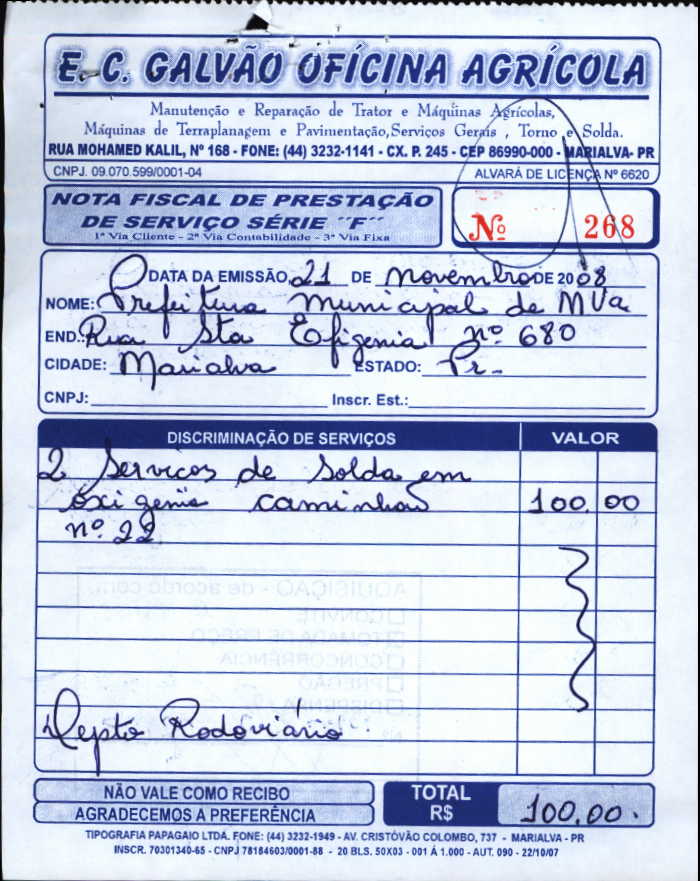 E. C. GALVÃO OFÍCINA AGRÍCOLA
Manutenção e Reparação de Trator e Máquinas Agrícolas,
Máquinas de Terraplanagem e Pavimentação, Serviços Gerais , Torno e Solda.
RUA MOHAMED KALIL, Nº 168 - FONE: (44) 3232-1141 - CX. P. 245 - CEP 86990-000 - MARIALVA- PR
CNPJ. 09.070.599/0001-04 ALVARÁ DE LICENÇA Nº 6620
NOTA FISCAL DE PRESTAÇÃO
DE SERVIÇO SÉRIE "F"
1ª Via Cliente - 2ª Via Contabilidade - 3ª Via Fixa
Nº 268
DATA DA EMISSÃO 21 DE novembro DE 2008
NOME: Prefeitura Municipal de MVa
END.: Rua Sta Efigenia nº 680
CIDADE: Marialva ESTADO: Pr-
CNPJ: Inscr. Est.:
DISCRIMINAÇÃO DE SERVIÇOS VALOR
2 Servicos de Solda em
oxigenia caminhão 100,00
nº 22
AQUISIÇÃO - de acordo com:
CONVITE
TOMADA DE PREÇO
CONCORRÊNCIA
PREGÃO
DISPENSA
Depto Rodoviário
NÃO VALE COMO RECIBO
AGRADECEMOS A PREFERÊNCIA
TOTAL
R$ 100,00.
TIPOGRAFIA PAPAGAIO LTDA. FONE: (44) 3232-1949 - AV. CRISTÓVÃO COLOMBO, 737 - MARIALVA - PR
INSCR. 70301340-65 - CNPJ 78184603/0001-88 - 20 BLS. 50X03 - 001 Á 1.000 - AUT. 090 - 22/10/07